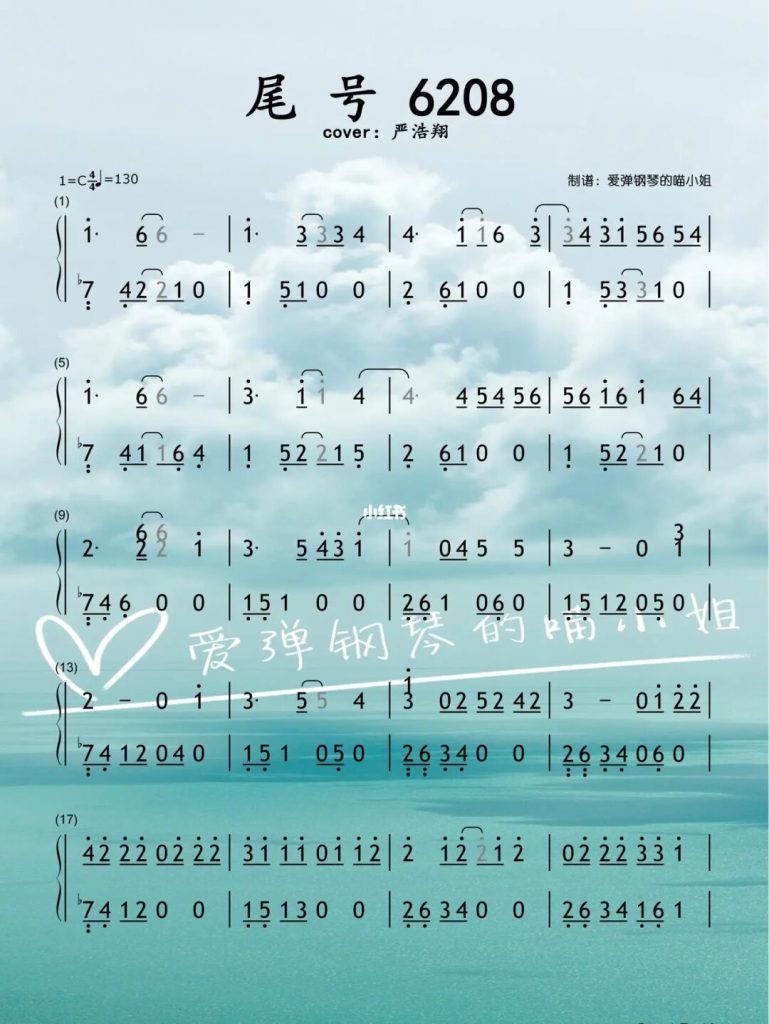 尾 号 6208
cover：严浩翔
1=C 4/4 ♩=130
制谱：爱弹钢琴的喵小姐
(1)
i· 6 6 – | i· 3 3 3 4 | 4· i i 6 3̇ | 3̇ 4̇ 3̇ i 5 6 5 4 |
♭7 4 2 2 1 0 | 1 5 1 0 0 | 2 6 1 0 0 | 1 5 3 3 1 0 |
(5)
i· 6 6 – | 3̇· i i 4 | 4· 4 5 4 5 6 | 5 6 i 6 i 6 4 |
♭7 4 1 1 6 4 | 1 5 2 2 1 5 | 2 6 1 0 0 | 1 5 2 2 1 0 |
(9)
小红书
6 6
2· 2 2 i | 3· 5 4̇ 3̇ i | i 0 4 5 5 | 3 – 0 i 3̇ |
♭7 4 6 0 0 | 1 5 1 0 0 | 2 6 1 0 6 0 | 1 5 1 2 0 5 0 |
爱弹钢琴的喵小姐
(13)
2 – 0 i | 3· 5 5 4 | i 3 0 2 5 2 4 2 | 3 – 0 i 2̇ 2̇ |
♭7 4 1 2 0 4 0 | 1 5 1 0 5 0 | 2 6 3 4 0 0 | 2 6 3 4 0 6 0 |
(17)
4̇ 2̇ 2̇ 2̇ 0 2̇ 2̇ 2̇ | 3̇ i i i 0 i i 2̇ | 2̇ i 2̇ 2̇ i 2̇ | 0 2̇ 2̇ 2̇ 3̇ 3̇ i |
♭7 4 1 2 0 0 | 1 5 1 3 0 0 | 2 6 3 4 0 0 | 2 6 3 4 1 6 1 |